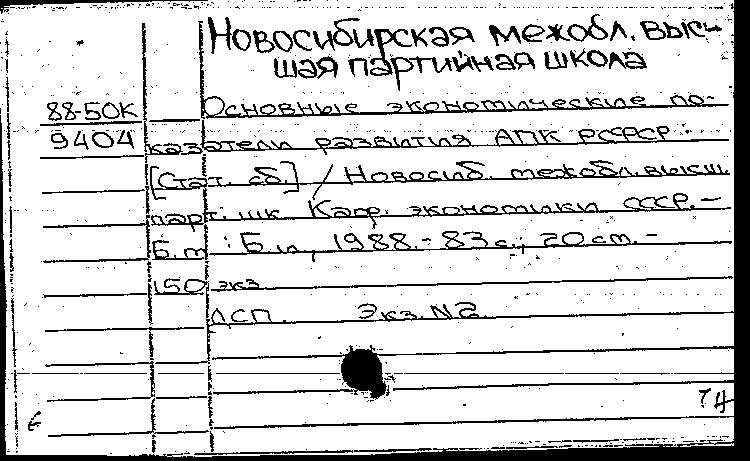 Новосибирская межобл. выс-
шая партийная школа
88-50К Основные экономические по-
9404 казатели развития АПК РСФСР:
[Стат. сб.] / Новосиб. межобл. высш.
парт. шк. Каф. экономики СССР. –
Б.м : Б.и, 1988. - 83 с.; 20 см. –
150 экз.
ДСП. Экз. N2